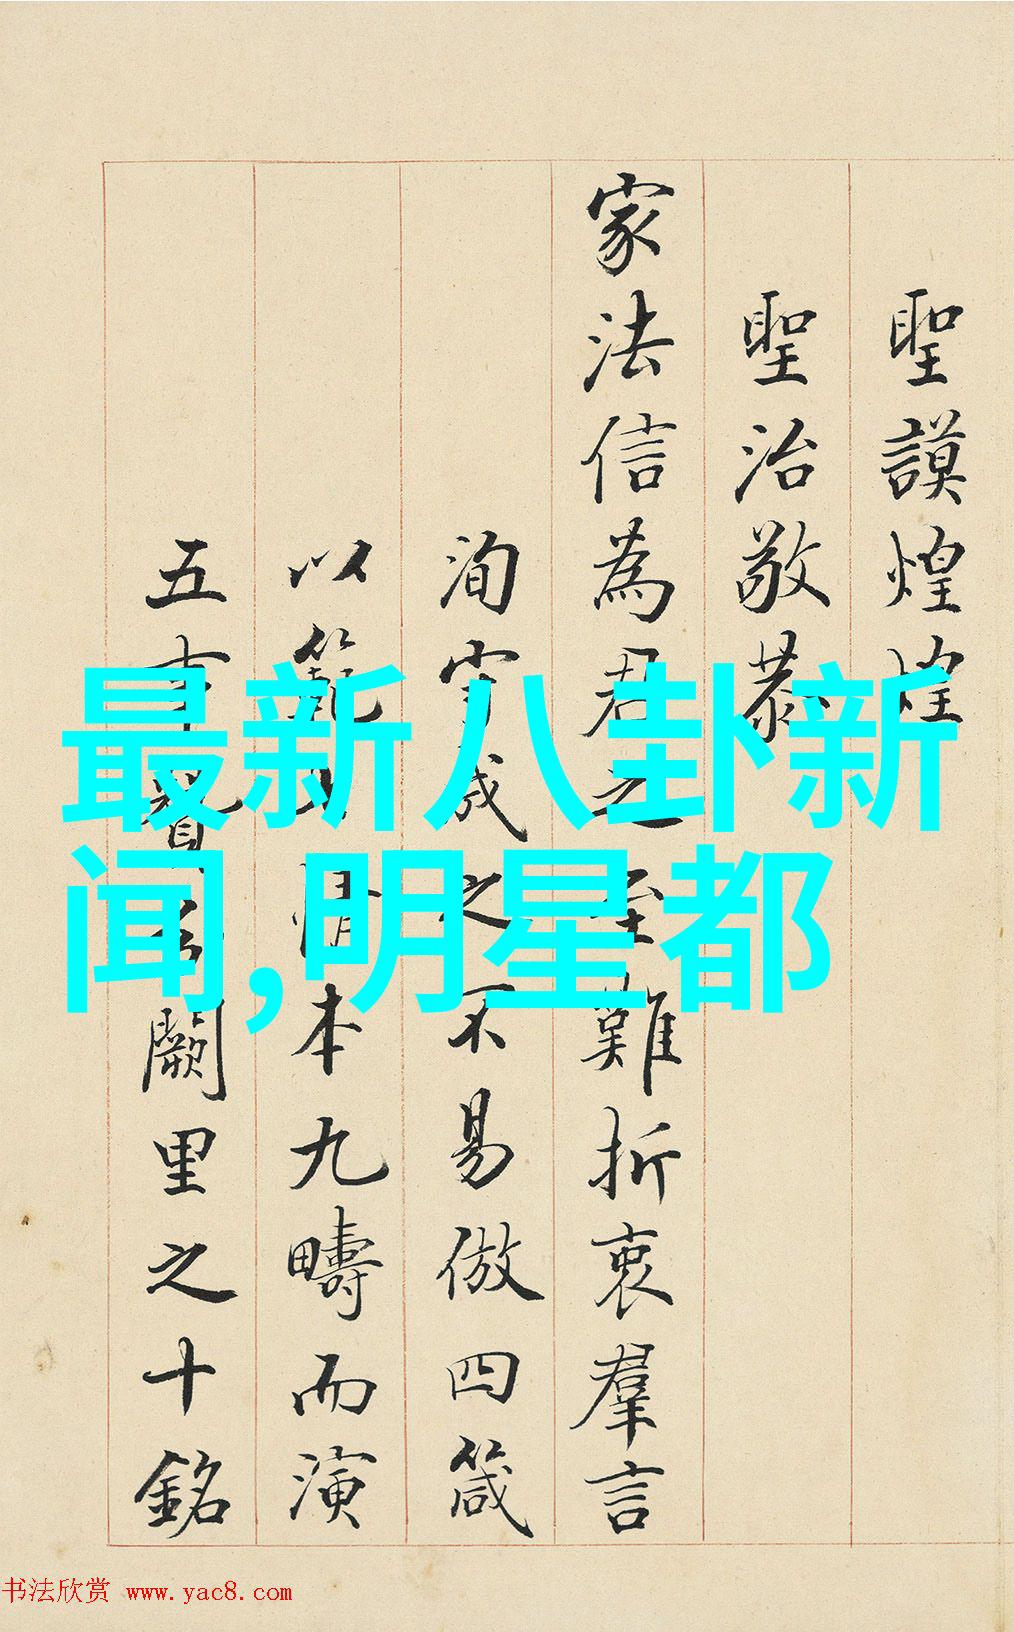 聖謨煌煌
聖治敬恭
家法信為君之至難折衷羣言
洵守成之不易倣四箴
以範性情本九疇而演
五事賢於闕里之十銘
最新八卦新
闻,明星都
书法欣赏 www.yac8.com